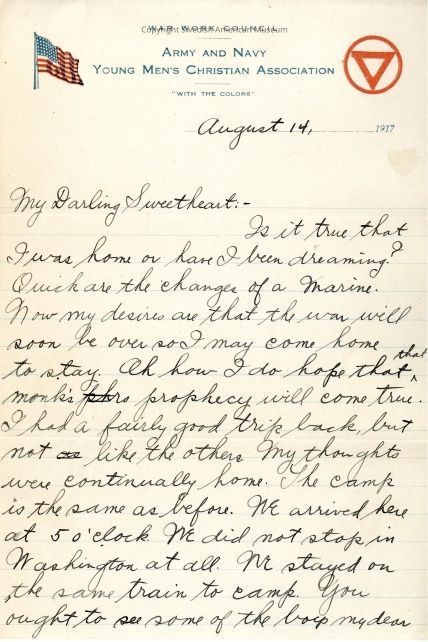 WAR WORK COUNCIL
Copyright Swedish American Museum
ARMY AND NAVY
YOUNG MEN'S CHRISTIAN ASSOCIATION
"WITH THE COLORS"
August 14, 1917
My Darling Sweetheart:-
Is it true that
I was home or have I been dreaming?
Quick are the changes of a Marine.
Now my desires are that the war will
soon be over so I may come home
to stay. Oh how I do hope that that
monk's phro prophecy will come true.
I had a fairly good trip back, but
not as like the others. My thoughts
were continually home. The camp
is the same as before. We arrived here
at 5 o'clock We did not stop in
Washington at all. We stayed on
the same train to camp. You
ought to see some of the boys my dear